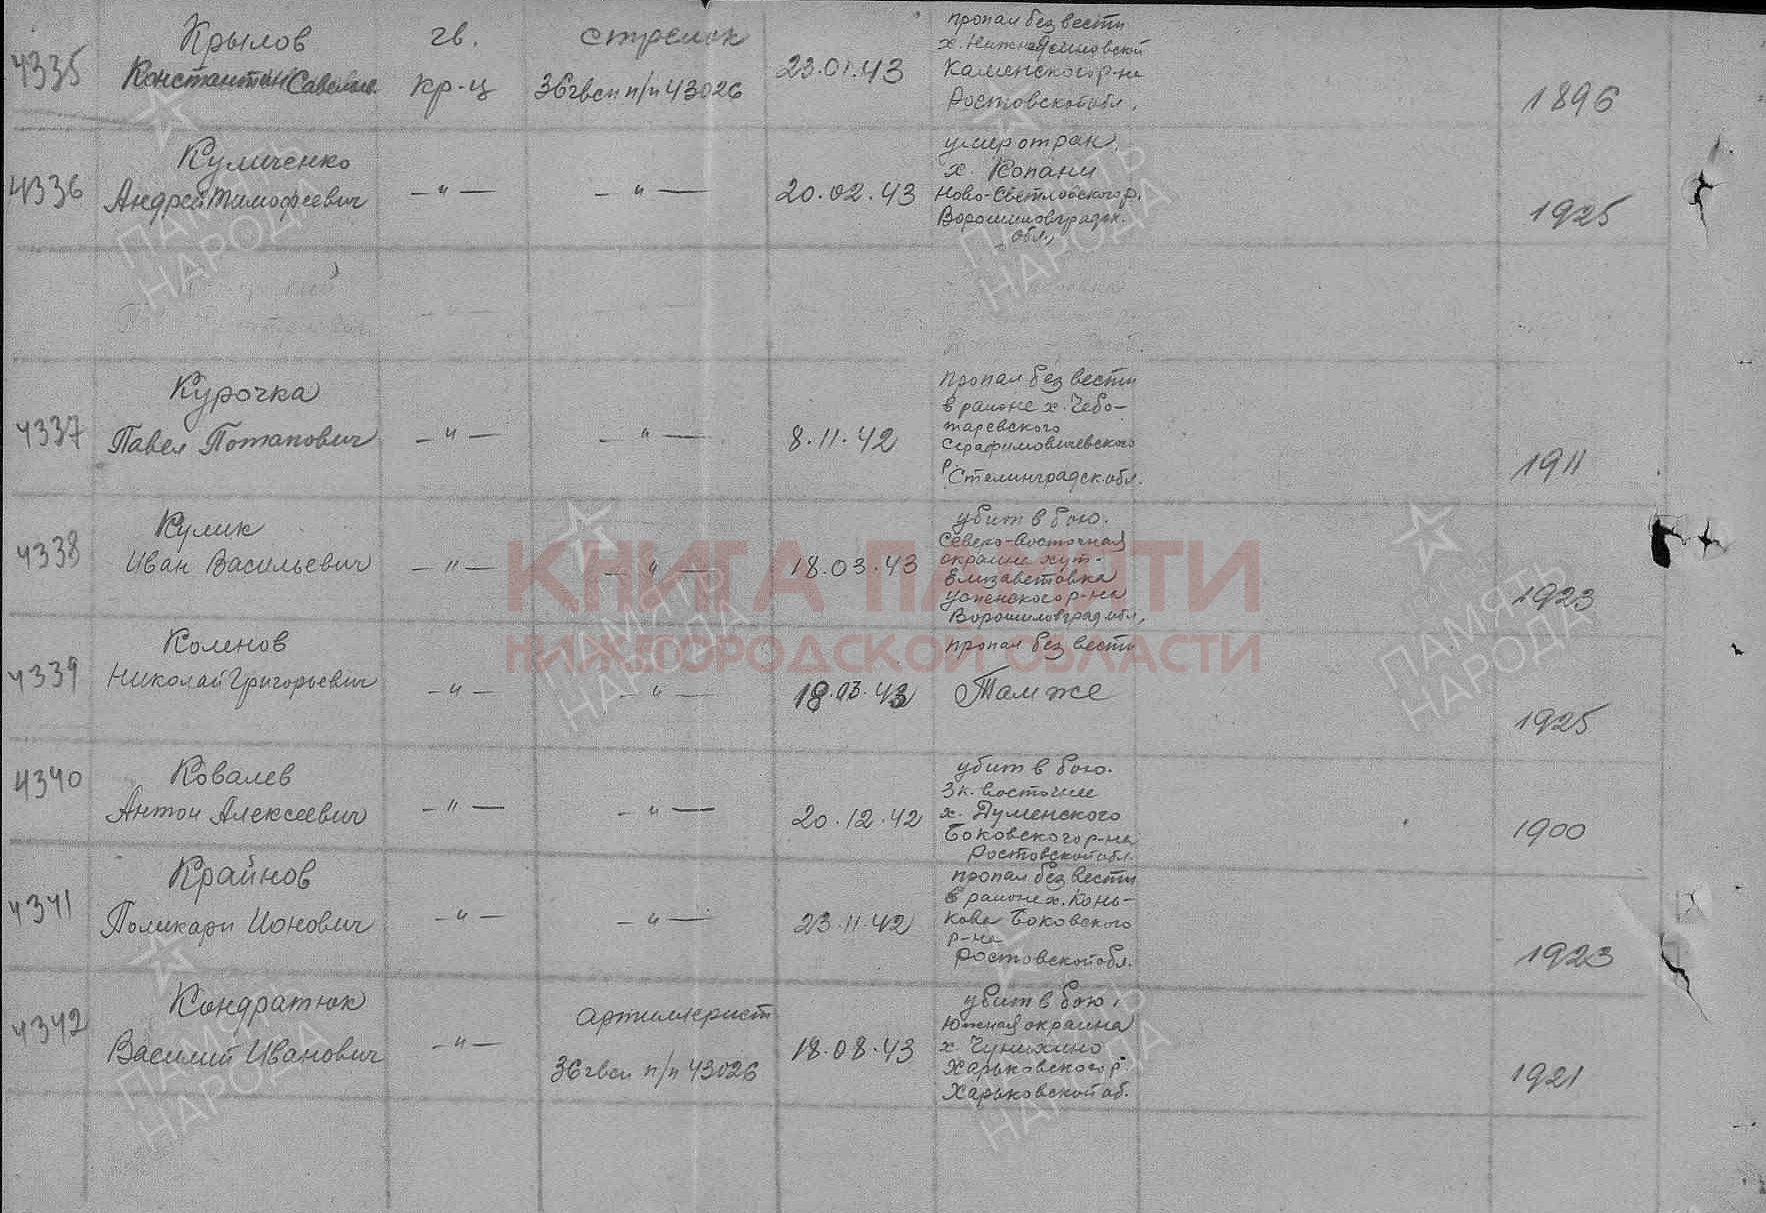 4335
Крылов
Константин Савельев.
гв.
кр-ц
стрелок
36гвсп п/п 43026
23.01.43
пропал без вести
х. Нижне
Каменского р-на
Ростовской обл.
1896
4336
Куличенко
Андрей Тимофеевич
— " —
— " —
20.02.43
умер от ран.
х. Копани
Ново-Светловского р.
Ворошиловградск.
обл.,
1925
4337
Курочка
Павел Потапович
— " —
— " —
8.11.42
пропал без вести
в районе х. Чебо-
таревского
Серафимовичевского
р. Сталинградск.обл.
1911
4338
Кулик
Иван Васильевич
— " —
— " —
18.03.43
убит в бою.
Северо-Восточная
окраине хут-
Елизаветовка
Успенского р-на
Ворошиловград.обл.,
1923
4339
Коленов
Николай Григорьевич
— " —
— " —
18.03.43
пропал без вести
Там же
1925
4340
Ковалев
Антон Алексеевич
— " —
— " —
20.12.42
убит в бою.
3 к. восточнее
х.
Боковского р-на
Ростовской обл.
1900
4341
Крайнов
Поликарп Ионович
— " —
— " —
23.11.42
пропал без вести
в районе х. Конь-
кова Боковского
р-на
Ростовской обл.
1923
4342
Кондратюк
Василий Иванович
— " —
артиллерист
36гвсп п/п 43026
18.08.43
убит в бою.
Южная окраина
х. Чунихино
Харьковского р.
Харьковской об.
1921
КНИГА ПАМЯТИ
НИЖЕГОРОДСКОЙ ОБЛАСТИ
ПАМЯТЬ
НАРОДА
ПАМЯТЬ
НАРОДА
ПАМЯТЬ
НАРОДА
ПАМЯТЬ
НАРОДА
ПАМЯТЬ
НАРОДА
ПАМЯТЬ
НАРОДА